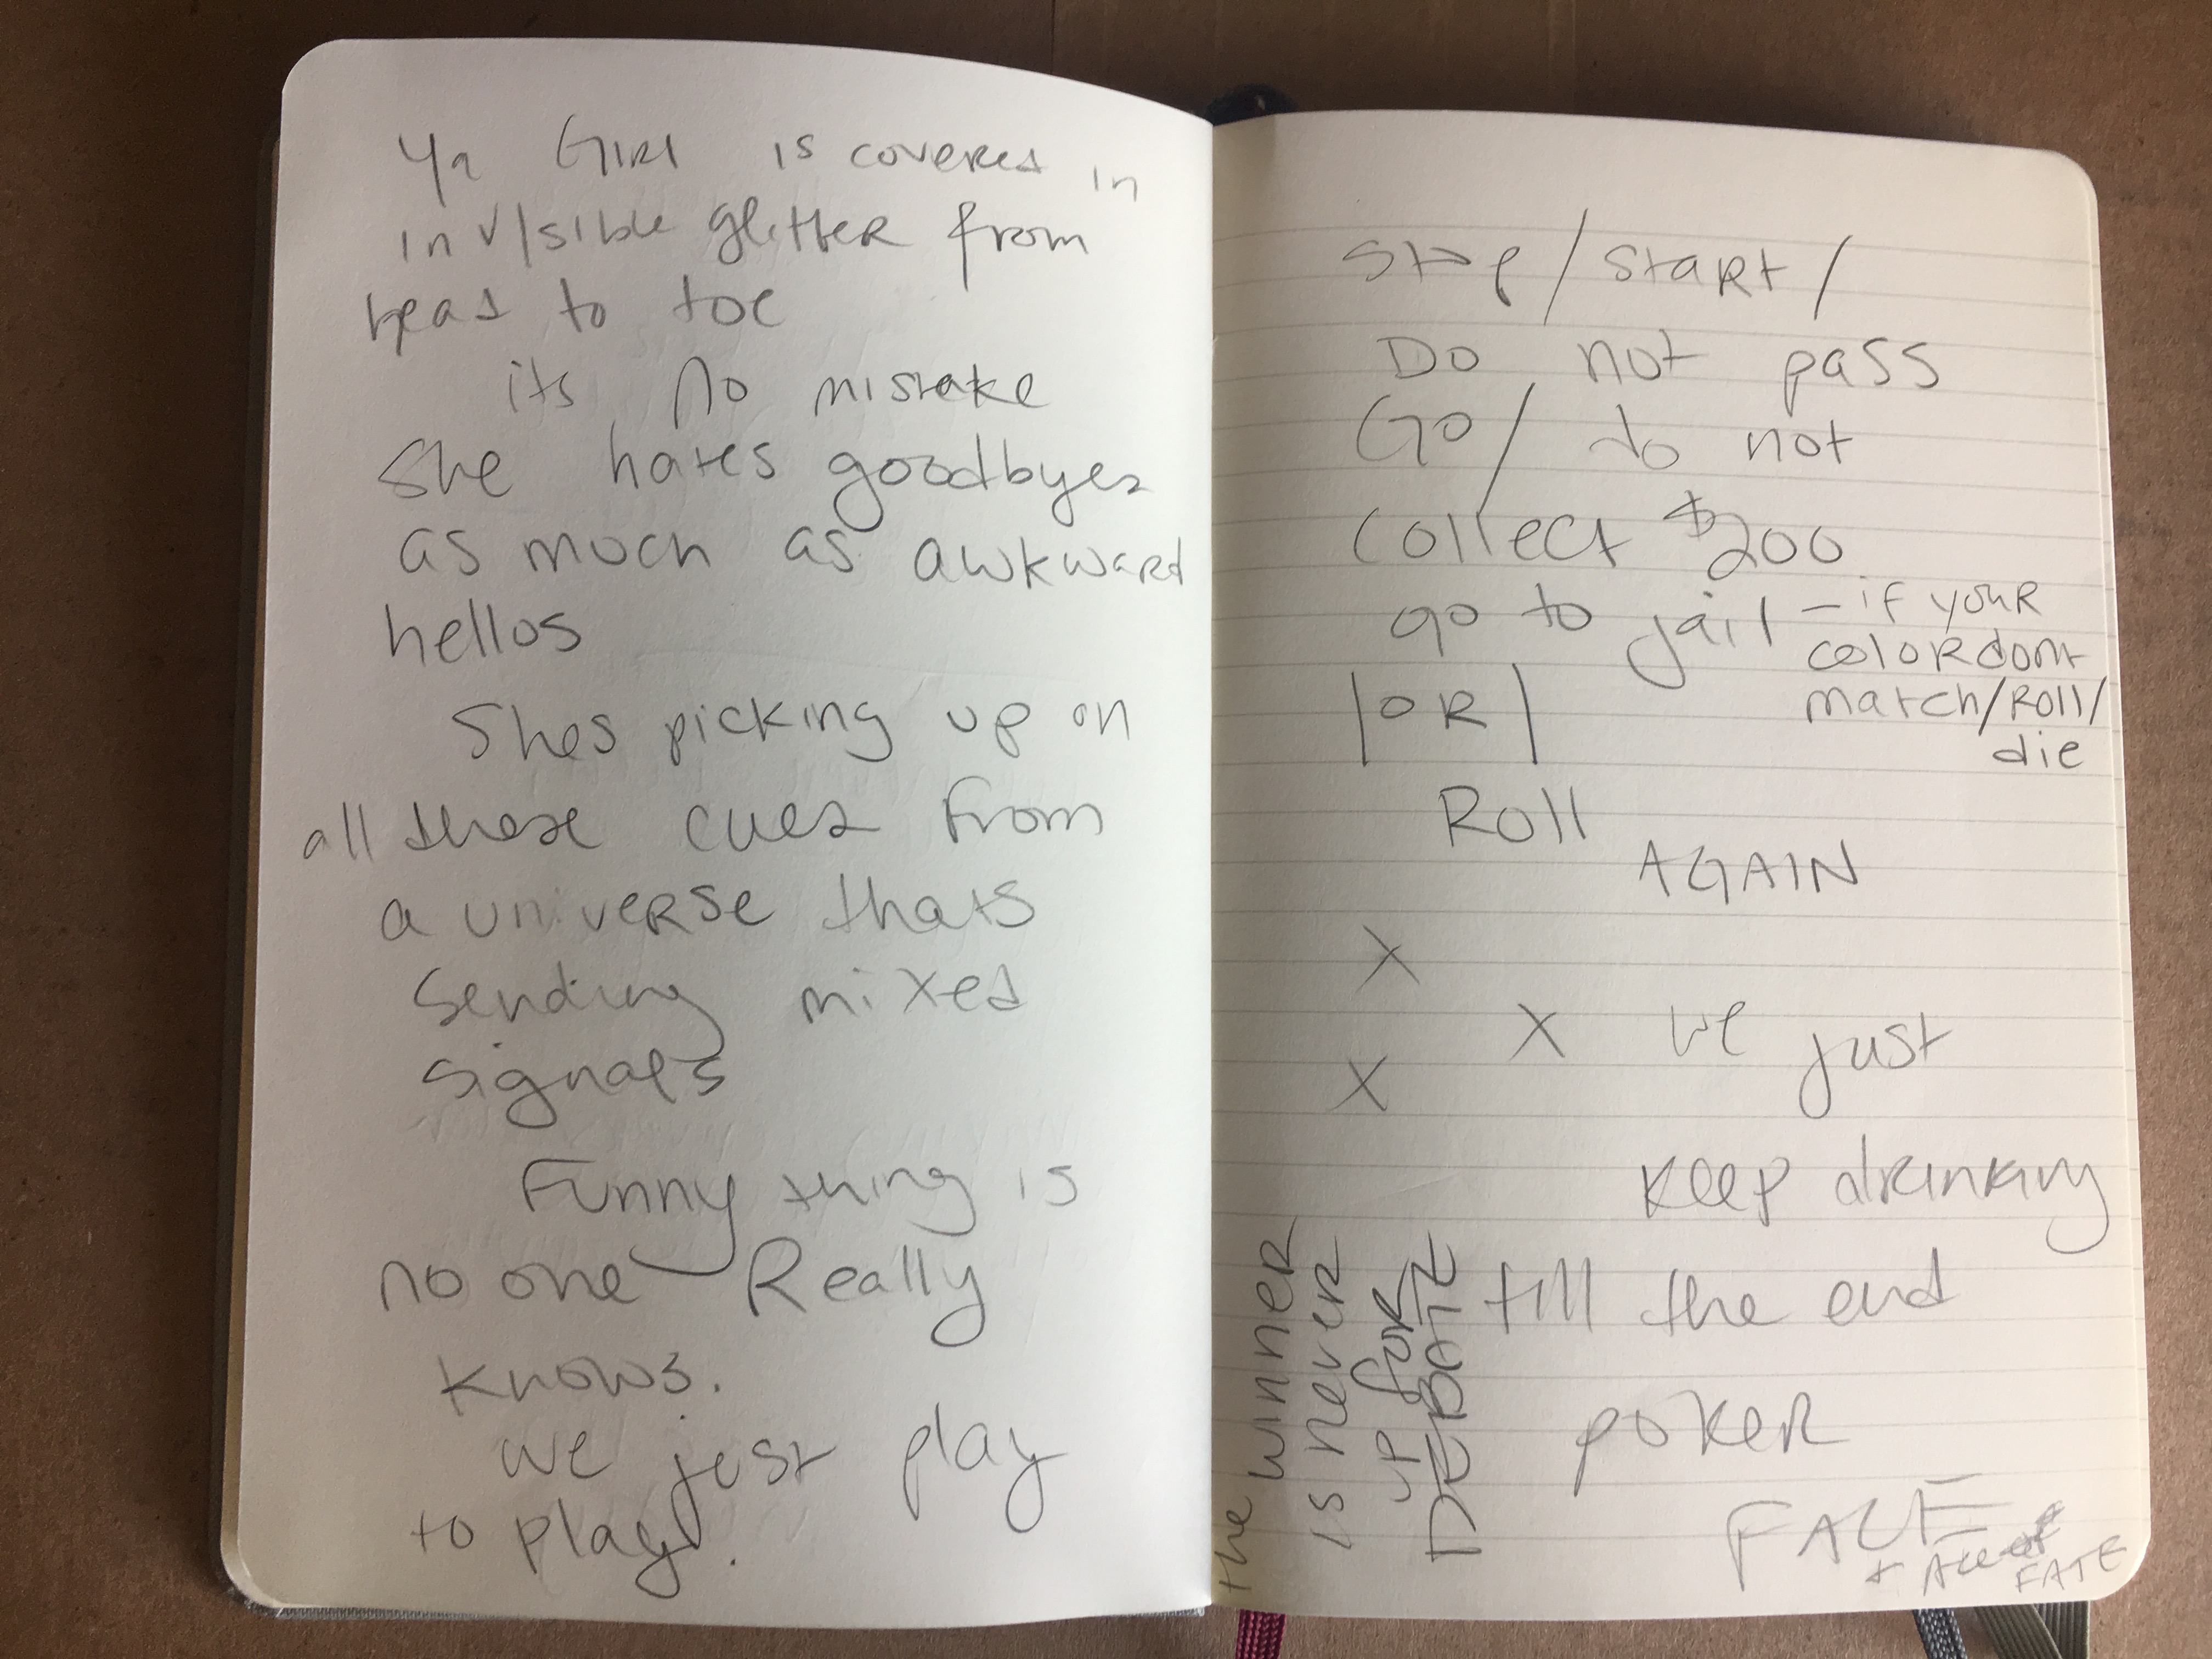 Ya GIRl is covered in
invisible glitteR from
head to toe
its no mistake
She hates goodbyes
as much as awkward
hellos
Shes picking up on
all these cues from
a univeRse thats
Sending mixed
signals
Funny thing is
no one Really
knows.
we just play
to play.
Stop / StaRt /
Do not pass
Go / do not
Collect $200
go to jail – if youR
coloR dont
match/Roll/
die
|OR|
Roll
AGAIN
X
X we just
X
Keep dRinking
till the end
pokeR
FACE
+ Ace of
FATE
the winneR
is neveR
up foR
DEBATE